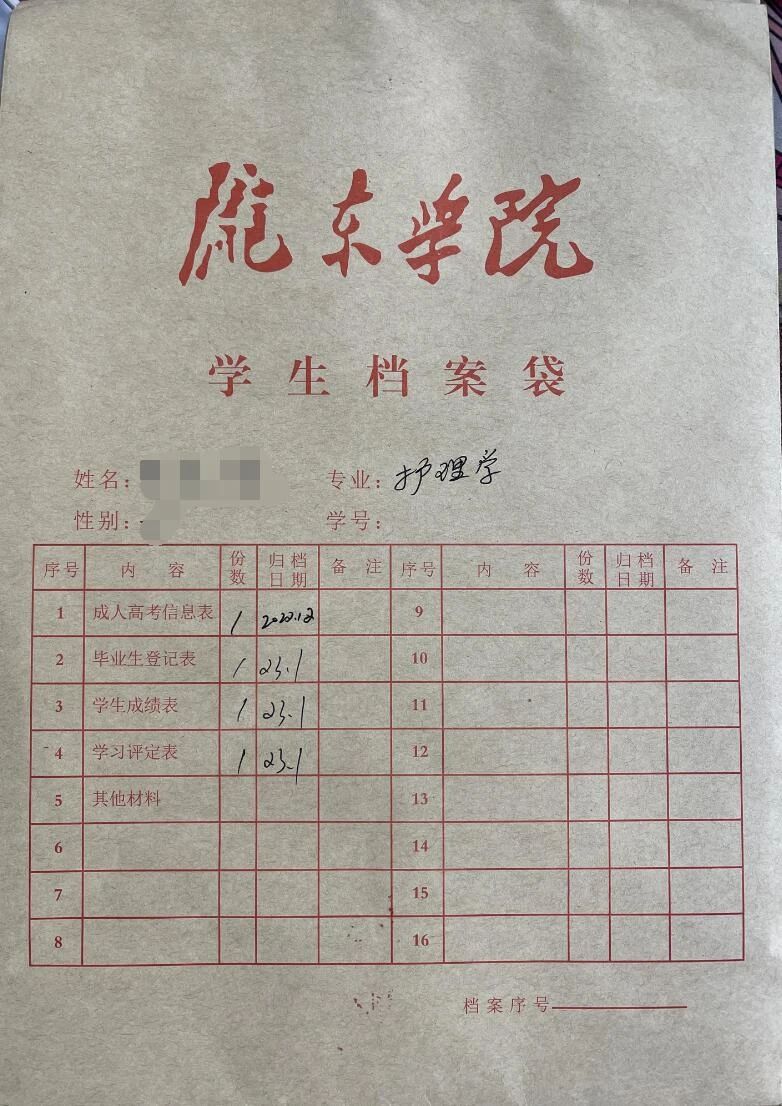 陇东学院
学生档案袋
姓名： 专业：护理学
性别： 学号：
序号 内容 份数 归档日期 备注 序号 内容 份数 归档日期 备注
1 成人高考信息表 1 2022.12 9
2 毕业生登记表 1 23.1 10
3 学生成绩表 1 23.1 11
4 学习评定表 1 23.1 12
5 其他材料 13
6 14
7 15
8 16
档案序号